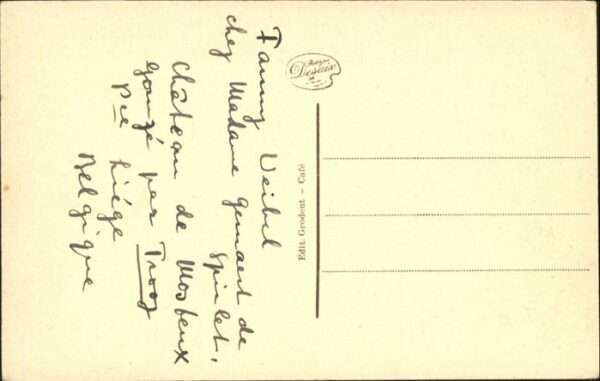 Fanny Veibel
chez Madame Gemaert de
Spirlet,
Château de Mosbeux
Gomzé par Trooz
Pce Liége
Belgique
Desaix
Edit. Grodent - Café